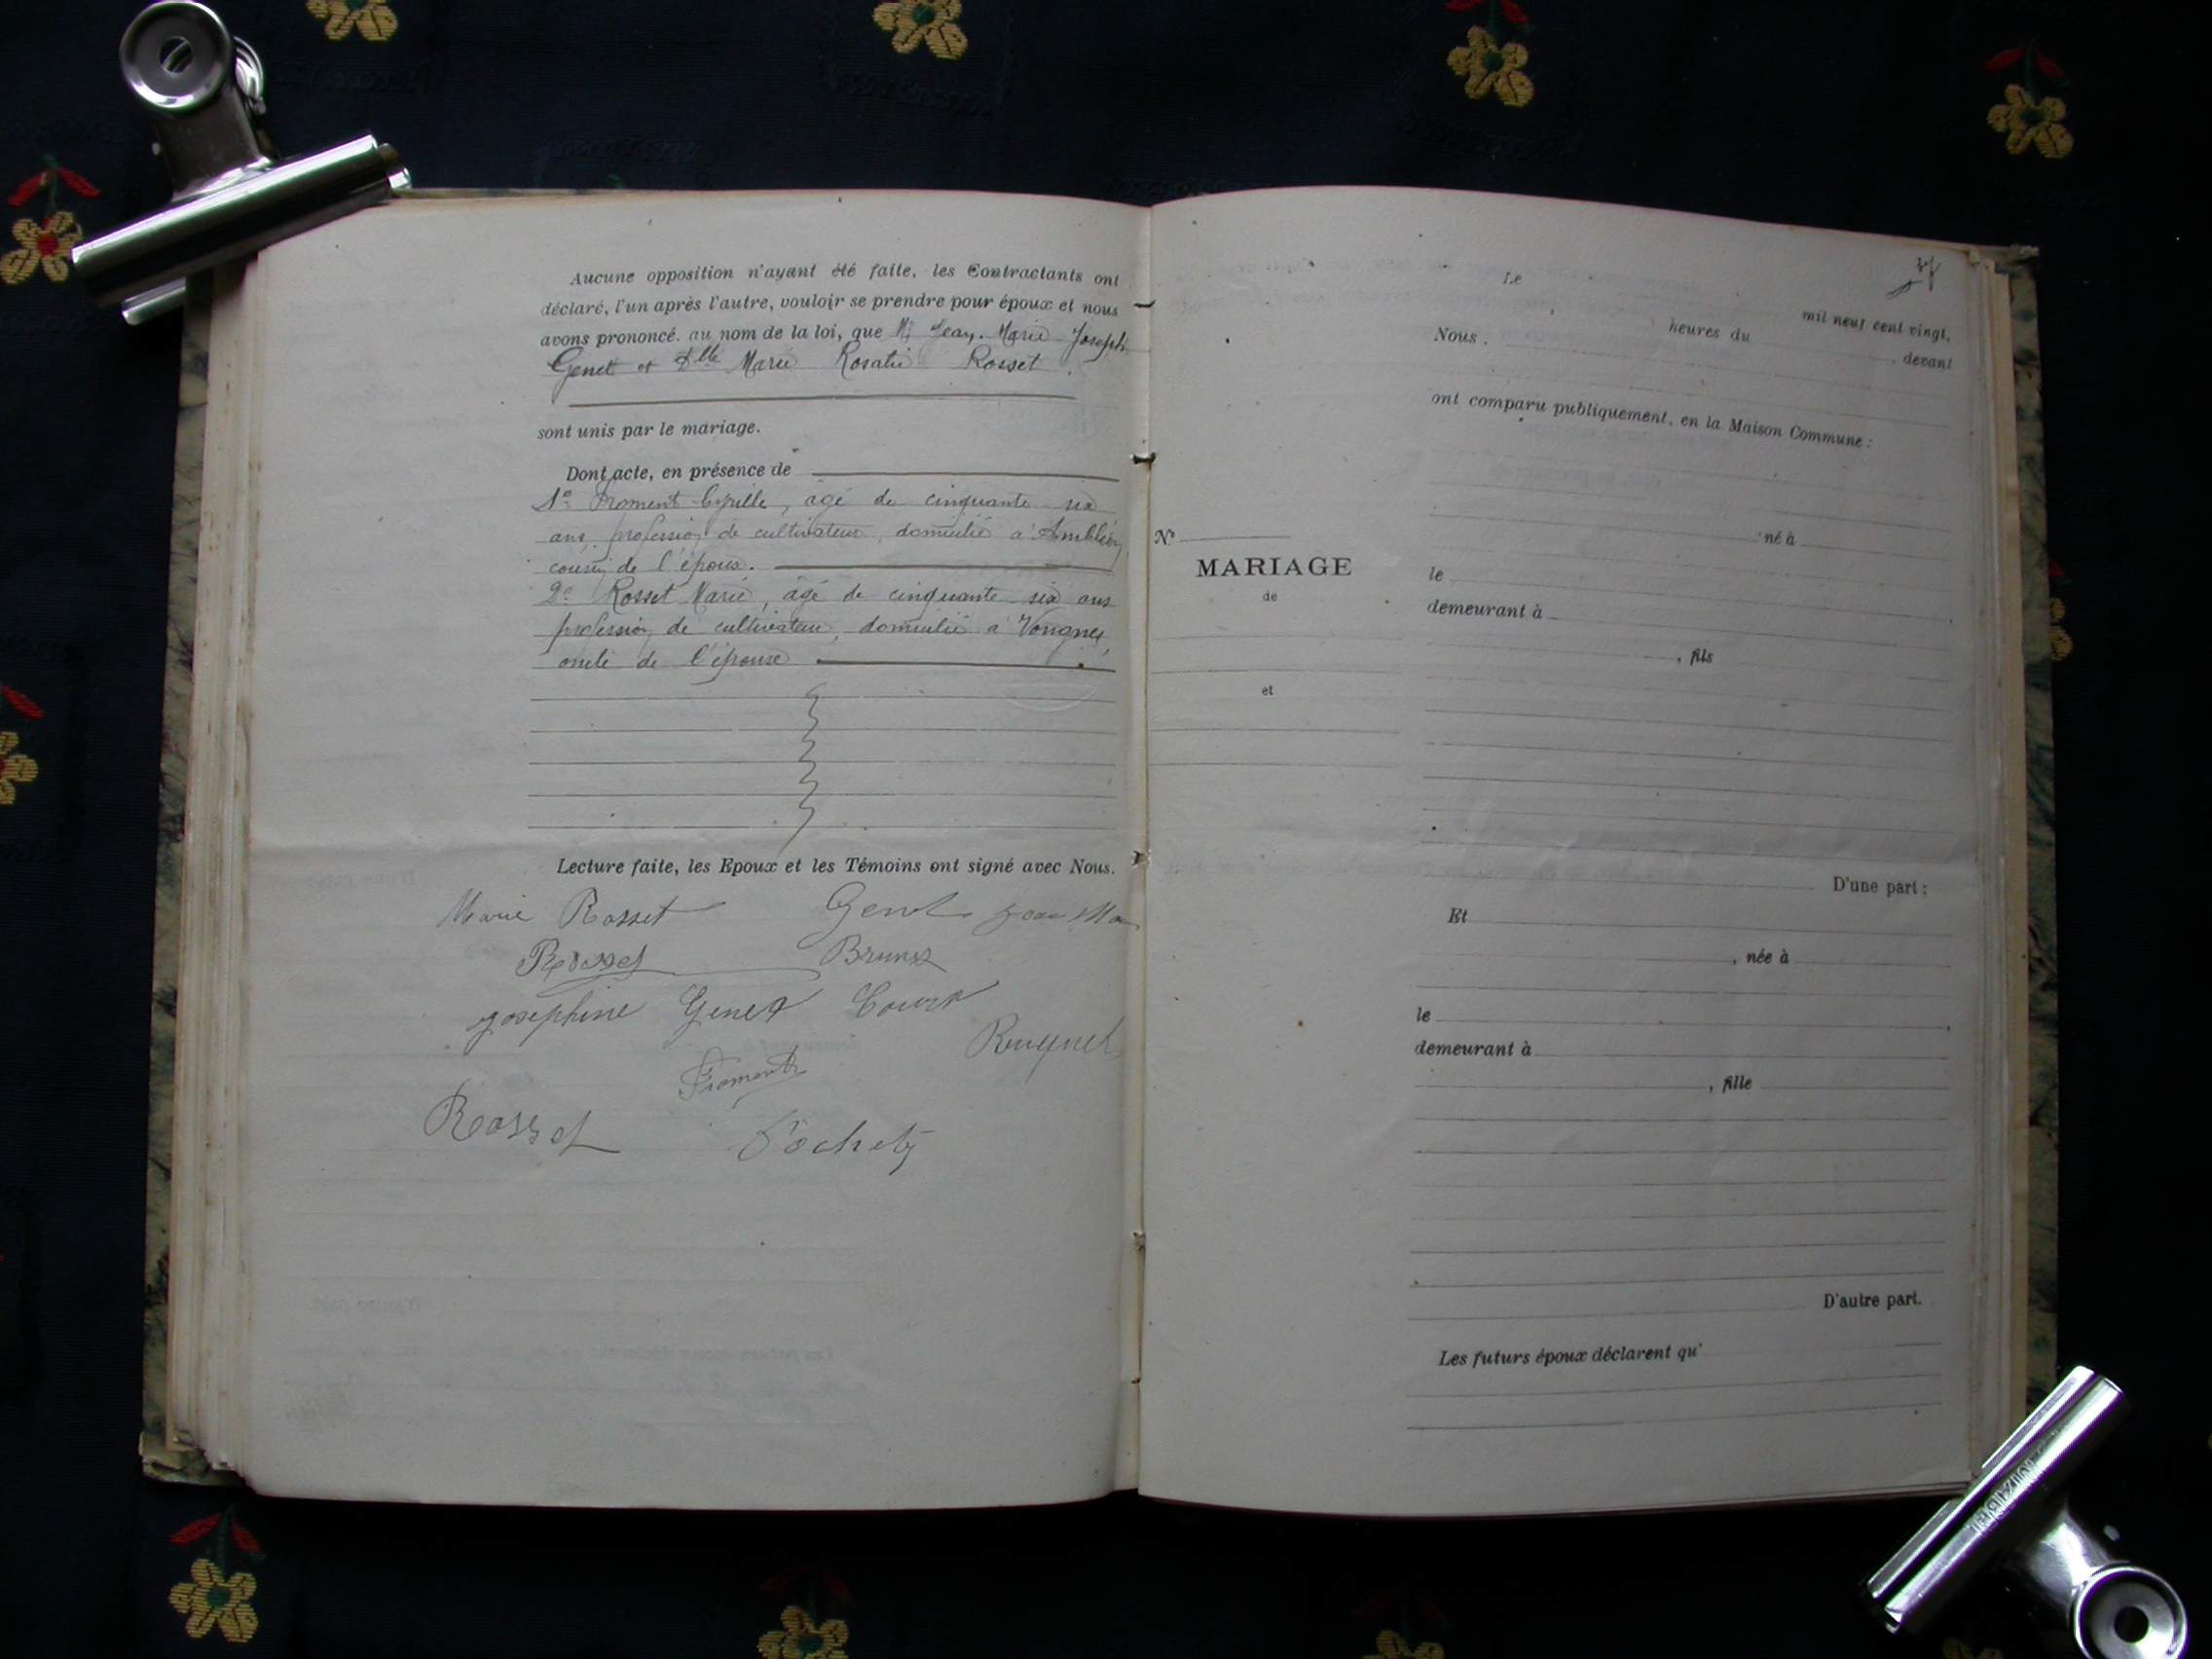 Aucune opposition n'ayant été faite, les Contractants ont
déclaré, l'un après l'autre, vouloir se prendre pour époux et nous
avons prononcé, au nom de la loi, que Mr Jean-Marie Joseph
Genet et Dlle Marie Rosalie Rosset.
sont unis par le mariage.
Dont acte, en présence de
1º Froment Cyrille, âgé de cinquante six
ans, profession de cultivateur, domicilié à Amblèon
cousin de l'époux.
2º Rosset Marie, âgé de cinquante six ans
profession de cultivateur, domicilié à Vongnes,
oncle de l'épouse
Lecture faite, les Epoux et les Témoins ont signé avec Nous.
Marie Rosset Genet Jean Ma
Rosset Brunet
Josephine Genet
Froment
Rosset Pochet
37
Le
mil neuf cent vingt,
heures du
Nous
, devant
ont comparu publiquement, en la Maison Commune :
Nº
né à
MARIAGE
le
de
demeurant à
, fils
et
D'une part ;
Et
, née à
le
demeurant à
, fille
D'autre part.
Les futurs époux déclarent qu'